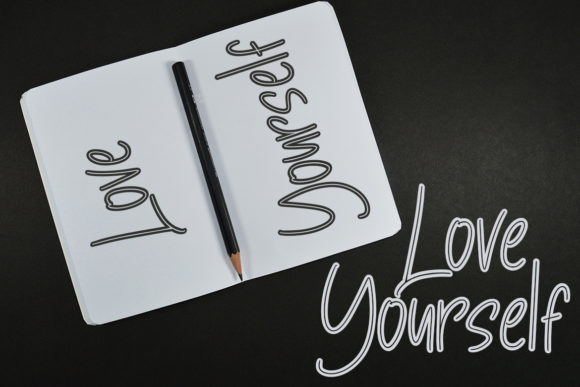 Love
Yourself
Love
Yourself